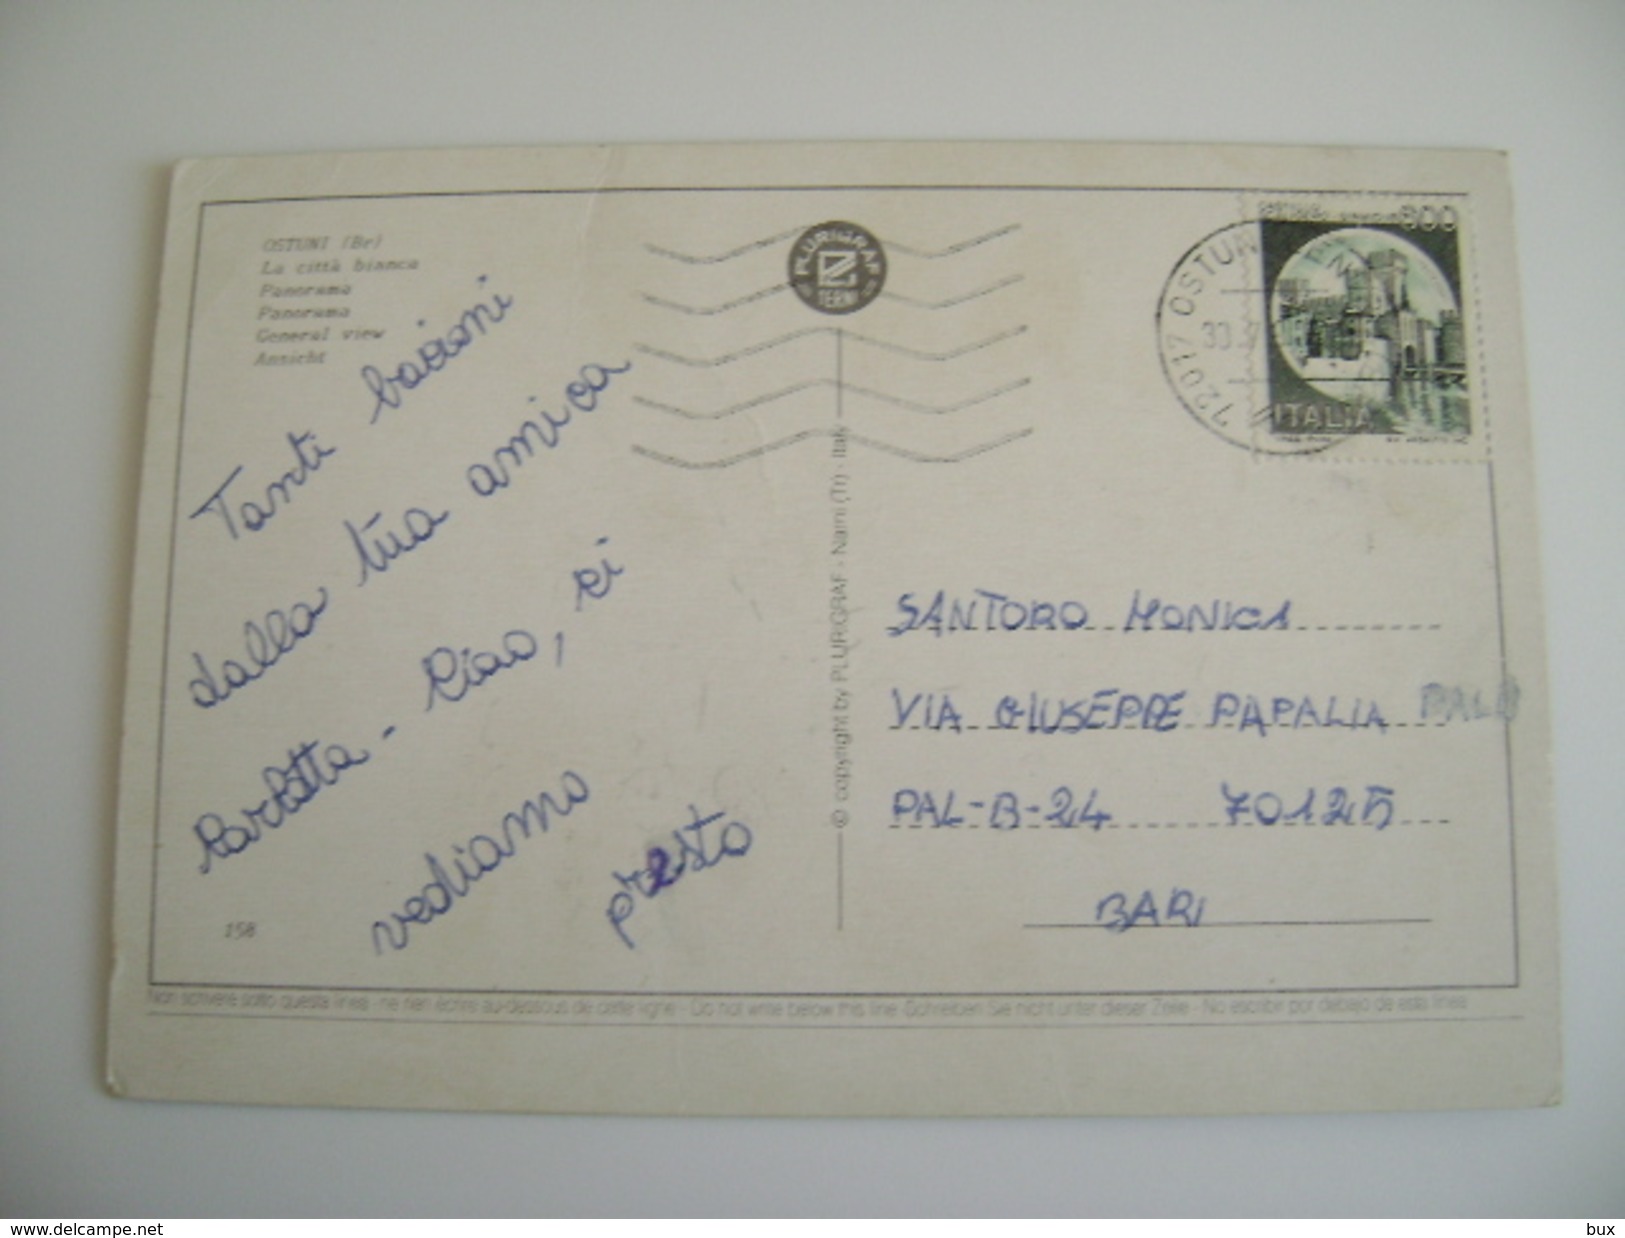 OSTUNI (Br)
La città bianca
Panorama
Panorama
General view
Ansicht
PLURIGRAF
TERNI
72017 OSTUNI
600
ITALIA
Tanti bacioni
dalla tua amica
Carlotta - Ciao, ci
vediamo
presto
© copyright by PLURIGRAF - Narni (Tr) - Italy
SANTORO MONICA
VIA GIUSEPPE PAPALIA
PAL-B-24 70125
BARI
158
Non scrivere sotto questa linea - ne rien écrire au-dessous de cette ligne - Do not write below this line - Schreiben Sie nicht unter dieser Zeile - No escribir por debajo de esta linea
www.delcampe.net
bux